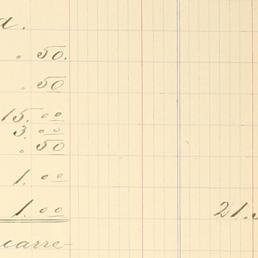 d.
. 50.
. 50
15. 00
3. 00
. 50
1. 00
1. 00
21.5
uarre-